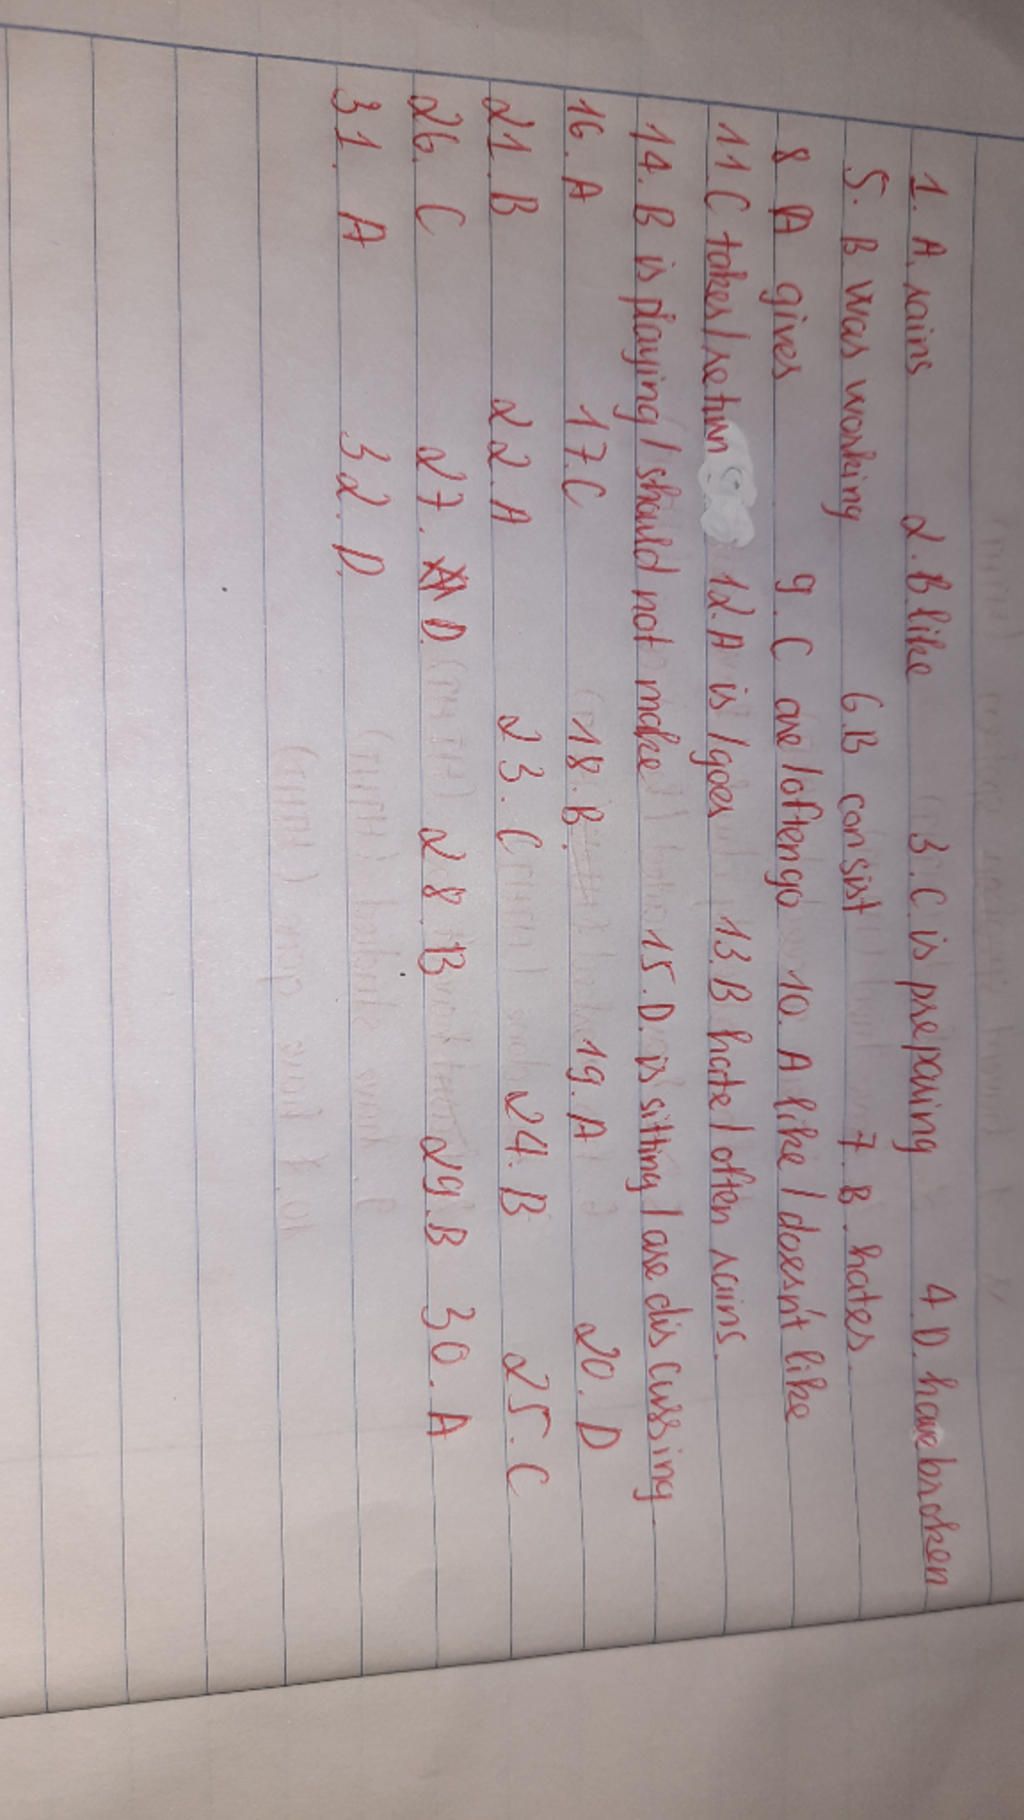 1. A. rains 2. B. like 3. C. is preparing 4. D. have broken
5. B was working 6. B consist 7. B. hates.
8 A gives 9. C are / often go 10. A like / doesn't like
11 C takes / return 12. A is / goes 13. B hate / often rains.
14. B is playing / should not make 15. D. is sitting / are discussing.
16. A 17. C 18. B. 19. A 20. D
21. B 22. A 23. C 24. B 25. C
26. C 27. D. 28. B 29. B 30. A
31. A 32. D.